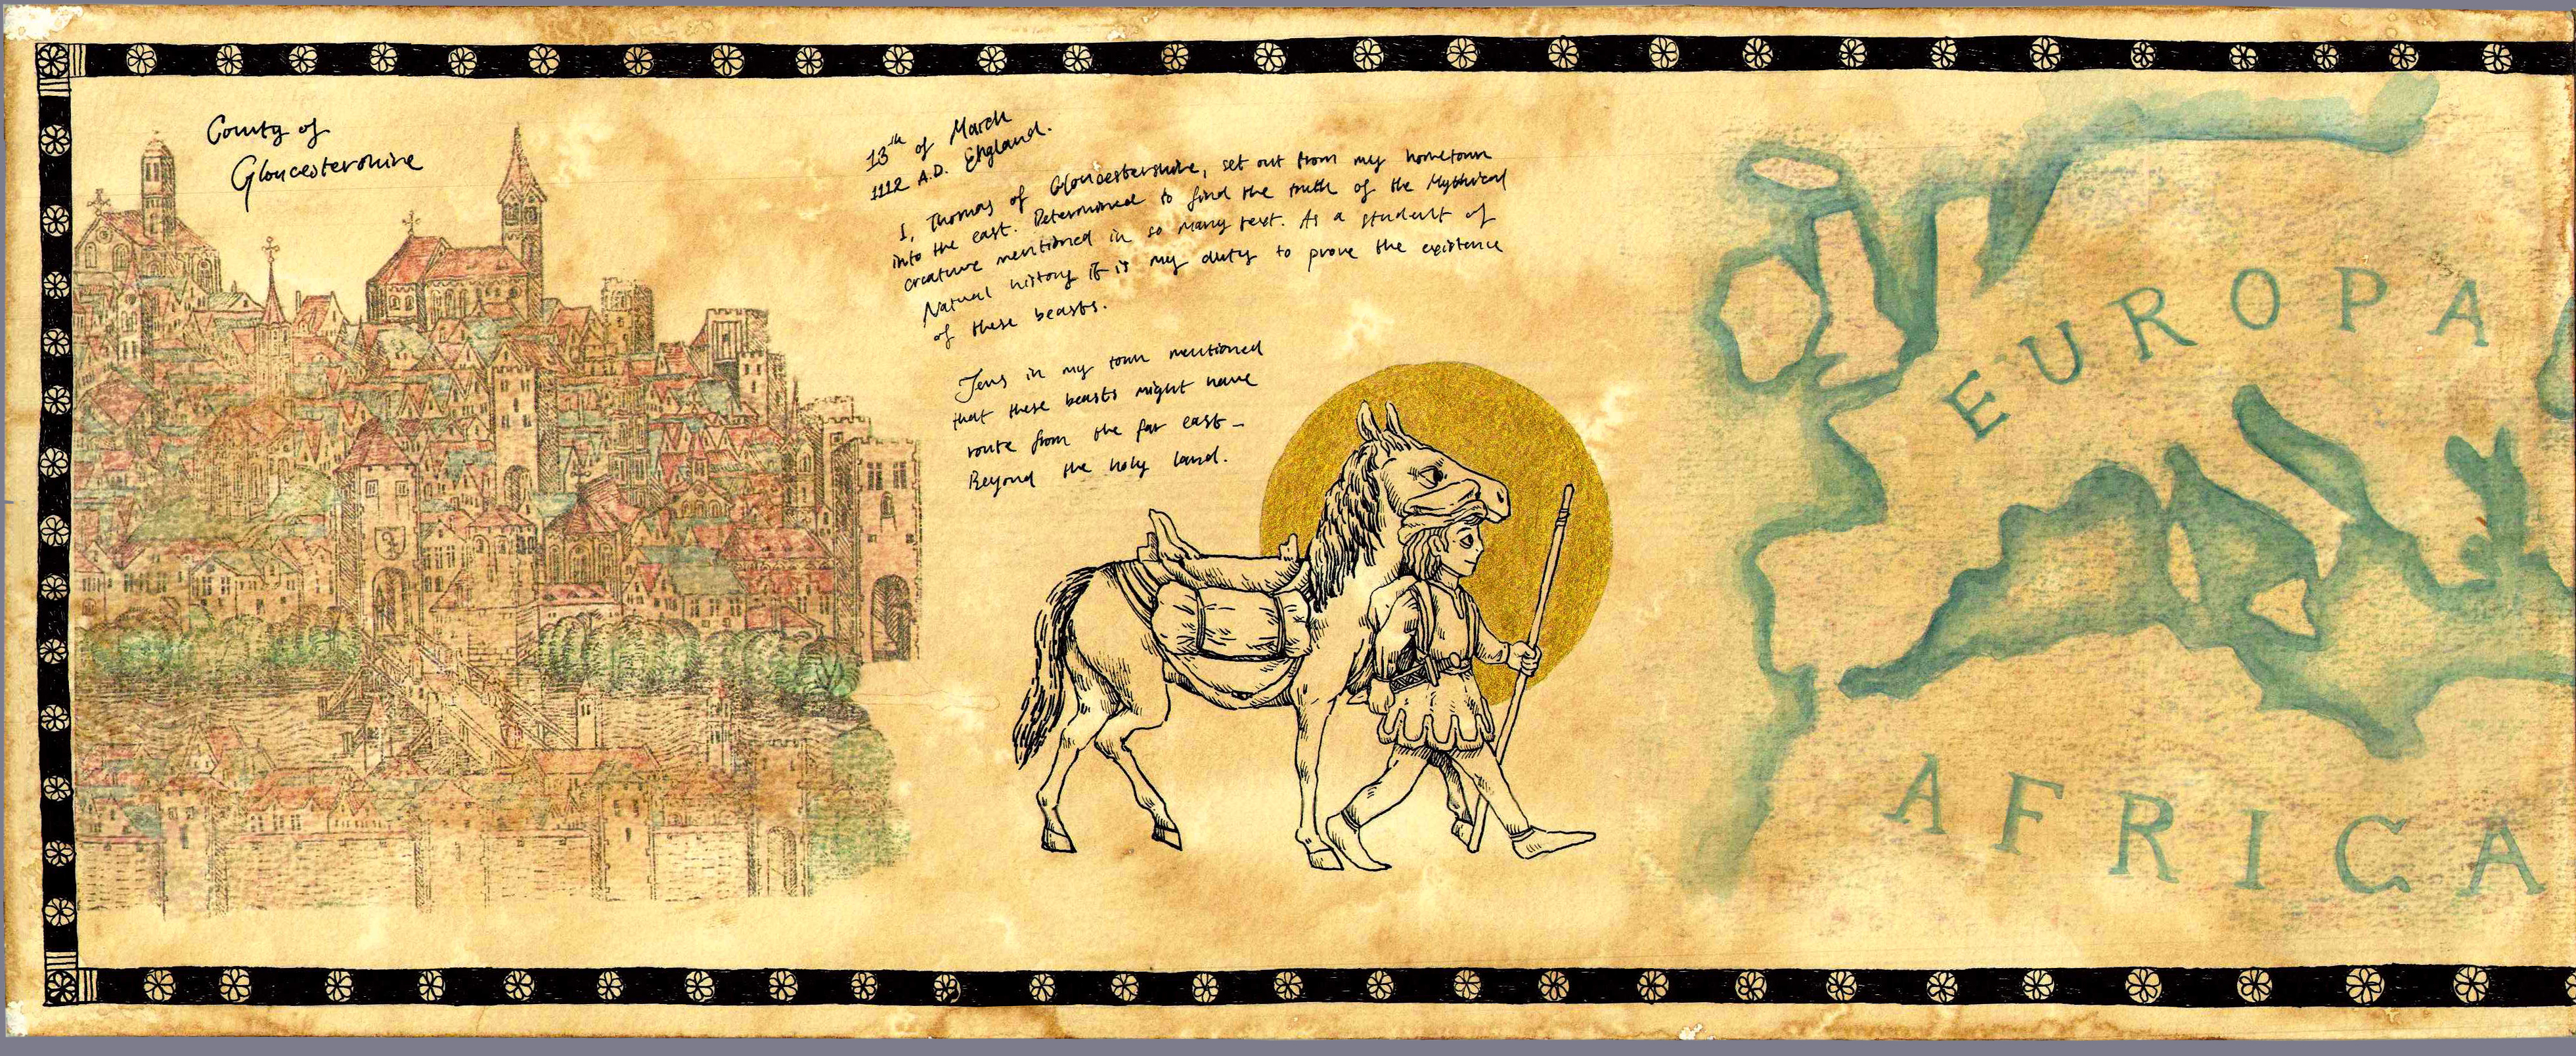 County of
Gloucestershire
13th of March
1112 A.D. England.
I, Thomas of Gloucestershire, set out from my hometown
into the east. Determined to find the truth of the Mythical
creature mentioned in so many text. As a student of
Natural history it is my duty to prove the existence
of these beasts.
Jews in my town mentioned
that these beasts might have
route from the far east -
Beyond the holy land.
EUROPA
AFRICA